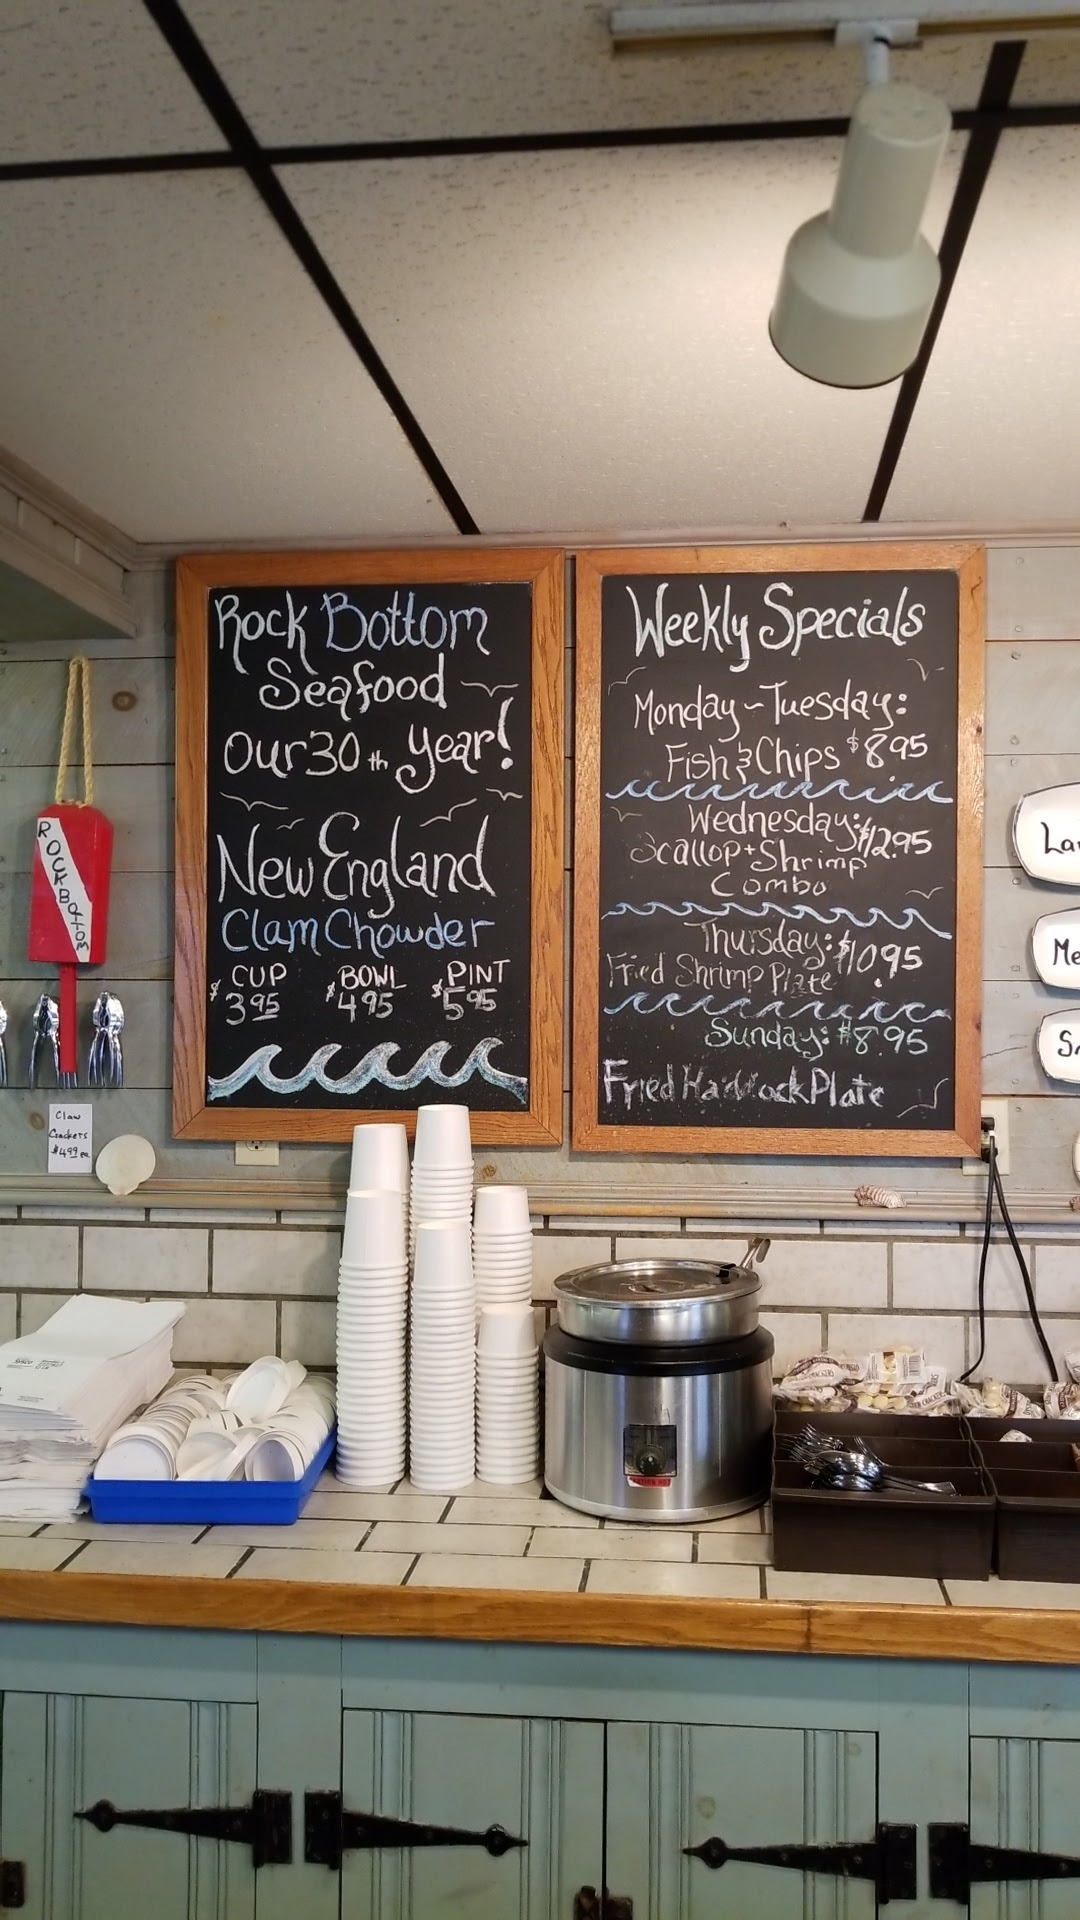 Rock Bottom
Seafood
Our 30th Year!
New England
Clam Chowder
CUP BOWL PINT
$3.95 $4.95 $5.95
Weekly Specials
Monday ~ Tuesday:
Fish & Chips $8.95
Wednesday: $12.95
Scallop + Shrimp
Combo
Thursday: $10.95
Fried Shrimp Plate
Sunday: $8.95
Fried Haddock Plate
ROCK BOTTOM
Claw
Crackers
$4.99 ea
Sysco